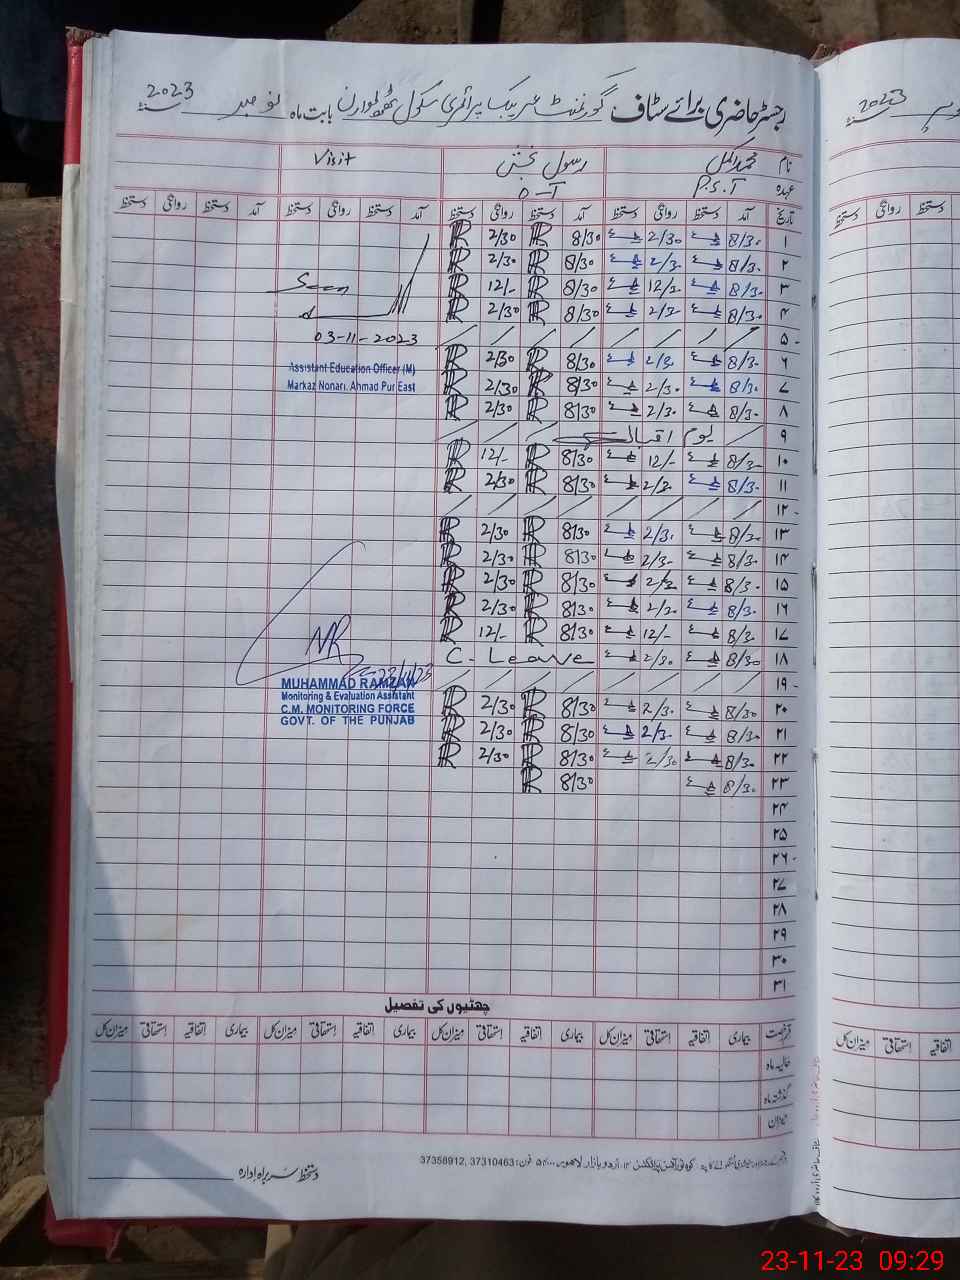 رجسٹر حاضری برائے سٹاف گورنمنٹ پرائمری سکول بابت ماہ نومبر 2023
نام محمد اکمل رسول بخش Visit
عہدہ P.S.T
تاریخ آمد دستخط روانگی دستخط آمد دستخط روانگی دستخط آمد دستخط روانگی دستخط آمد دستخط روانگی دستخط
۱ 8/30 2/30 8/30 2/30
۲ 8/30 2/30 8/30 2/30
۳ 8/30 12/30 8/30 12/-
۴ 8/30 2/30 8/30 2/30
۵
۶ 8/30 2/30 8/30 2/30
۷ 8/30 2/30 8/30 2/30
۸ 8/30 2/30 8/30 2/30
۹ یوم اقبال
۱۰ 8/30 12/- 8/30 12/-
۱۱ 8/30 2/30 8/30 2/30
۱۲
۱۳ 8/30 2/30 8/30 2/30
۱۴ 8/30 2/30 8/30 2/30
۱۵ 8/30 2/30 8/30 2/30
۱۶ 8/30 2/30 8/30 2/30
۱۷ 8/30 12/- 8/30 12/-
۱۸ 8/30 2/30 C. Leave
۱۹
۲۰ 8/30 2/30 8/30 2/30
۲۱ 8/30 2/30 8/30 2/30
۲۲ 8/30 2/30 8/30 2/30
۲۳ 8/30 8/30
۲۴
۲۵
۲۶
۲۷
۲۸
۲۹
۳۰
۳۱
Seen
03-11-2023
Assistant Education Officer (M)
Markaz Nonari, Ahmad Pur East
MUHAMMAD RAMZAN
Monitoring & Evaluation Assistant
C.M. MONITORING FORCE
GOVT. OF THE PUNJAB
چھٹیوں کی تفصیل
قسم رخصت بیماری اتفاقیہ استحقاقی میزان کل بیماری اتفاقیہ استحقاقی میزان کل بیماری اتفاقیہ استحقاقی میزان کل بیماری اتفاقیہ استحقاقی میزان کل
حالیہ ماہ
گذشتہ ماہ
میزان
اردو بازار لاہور فون: 37310463, 37358912
دستخط سربراہ ادارہ
2023
دستخط روانگی دستخط
اتفاقیہ استحقاقی میزان کل
23-11-23 09:29